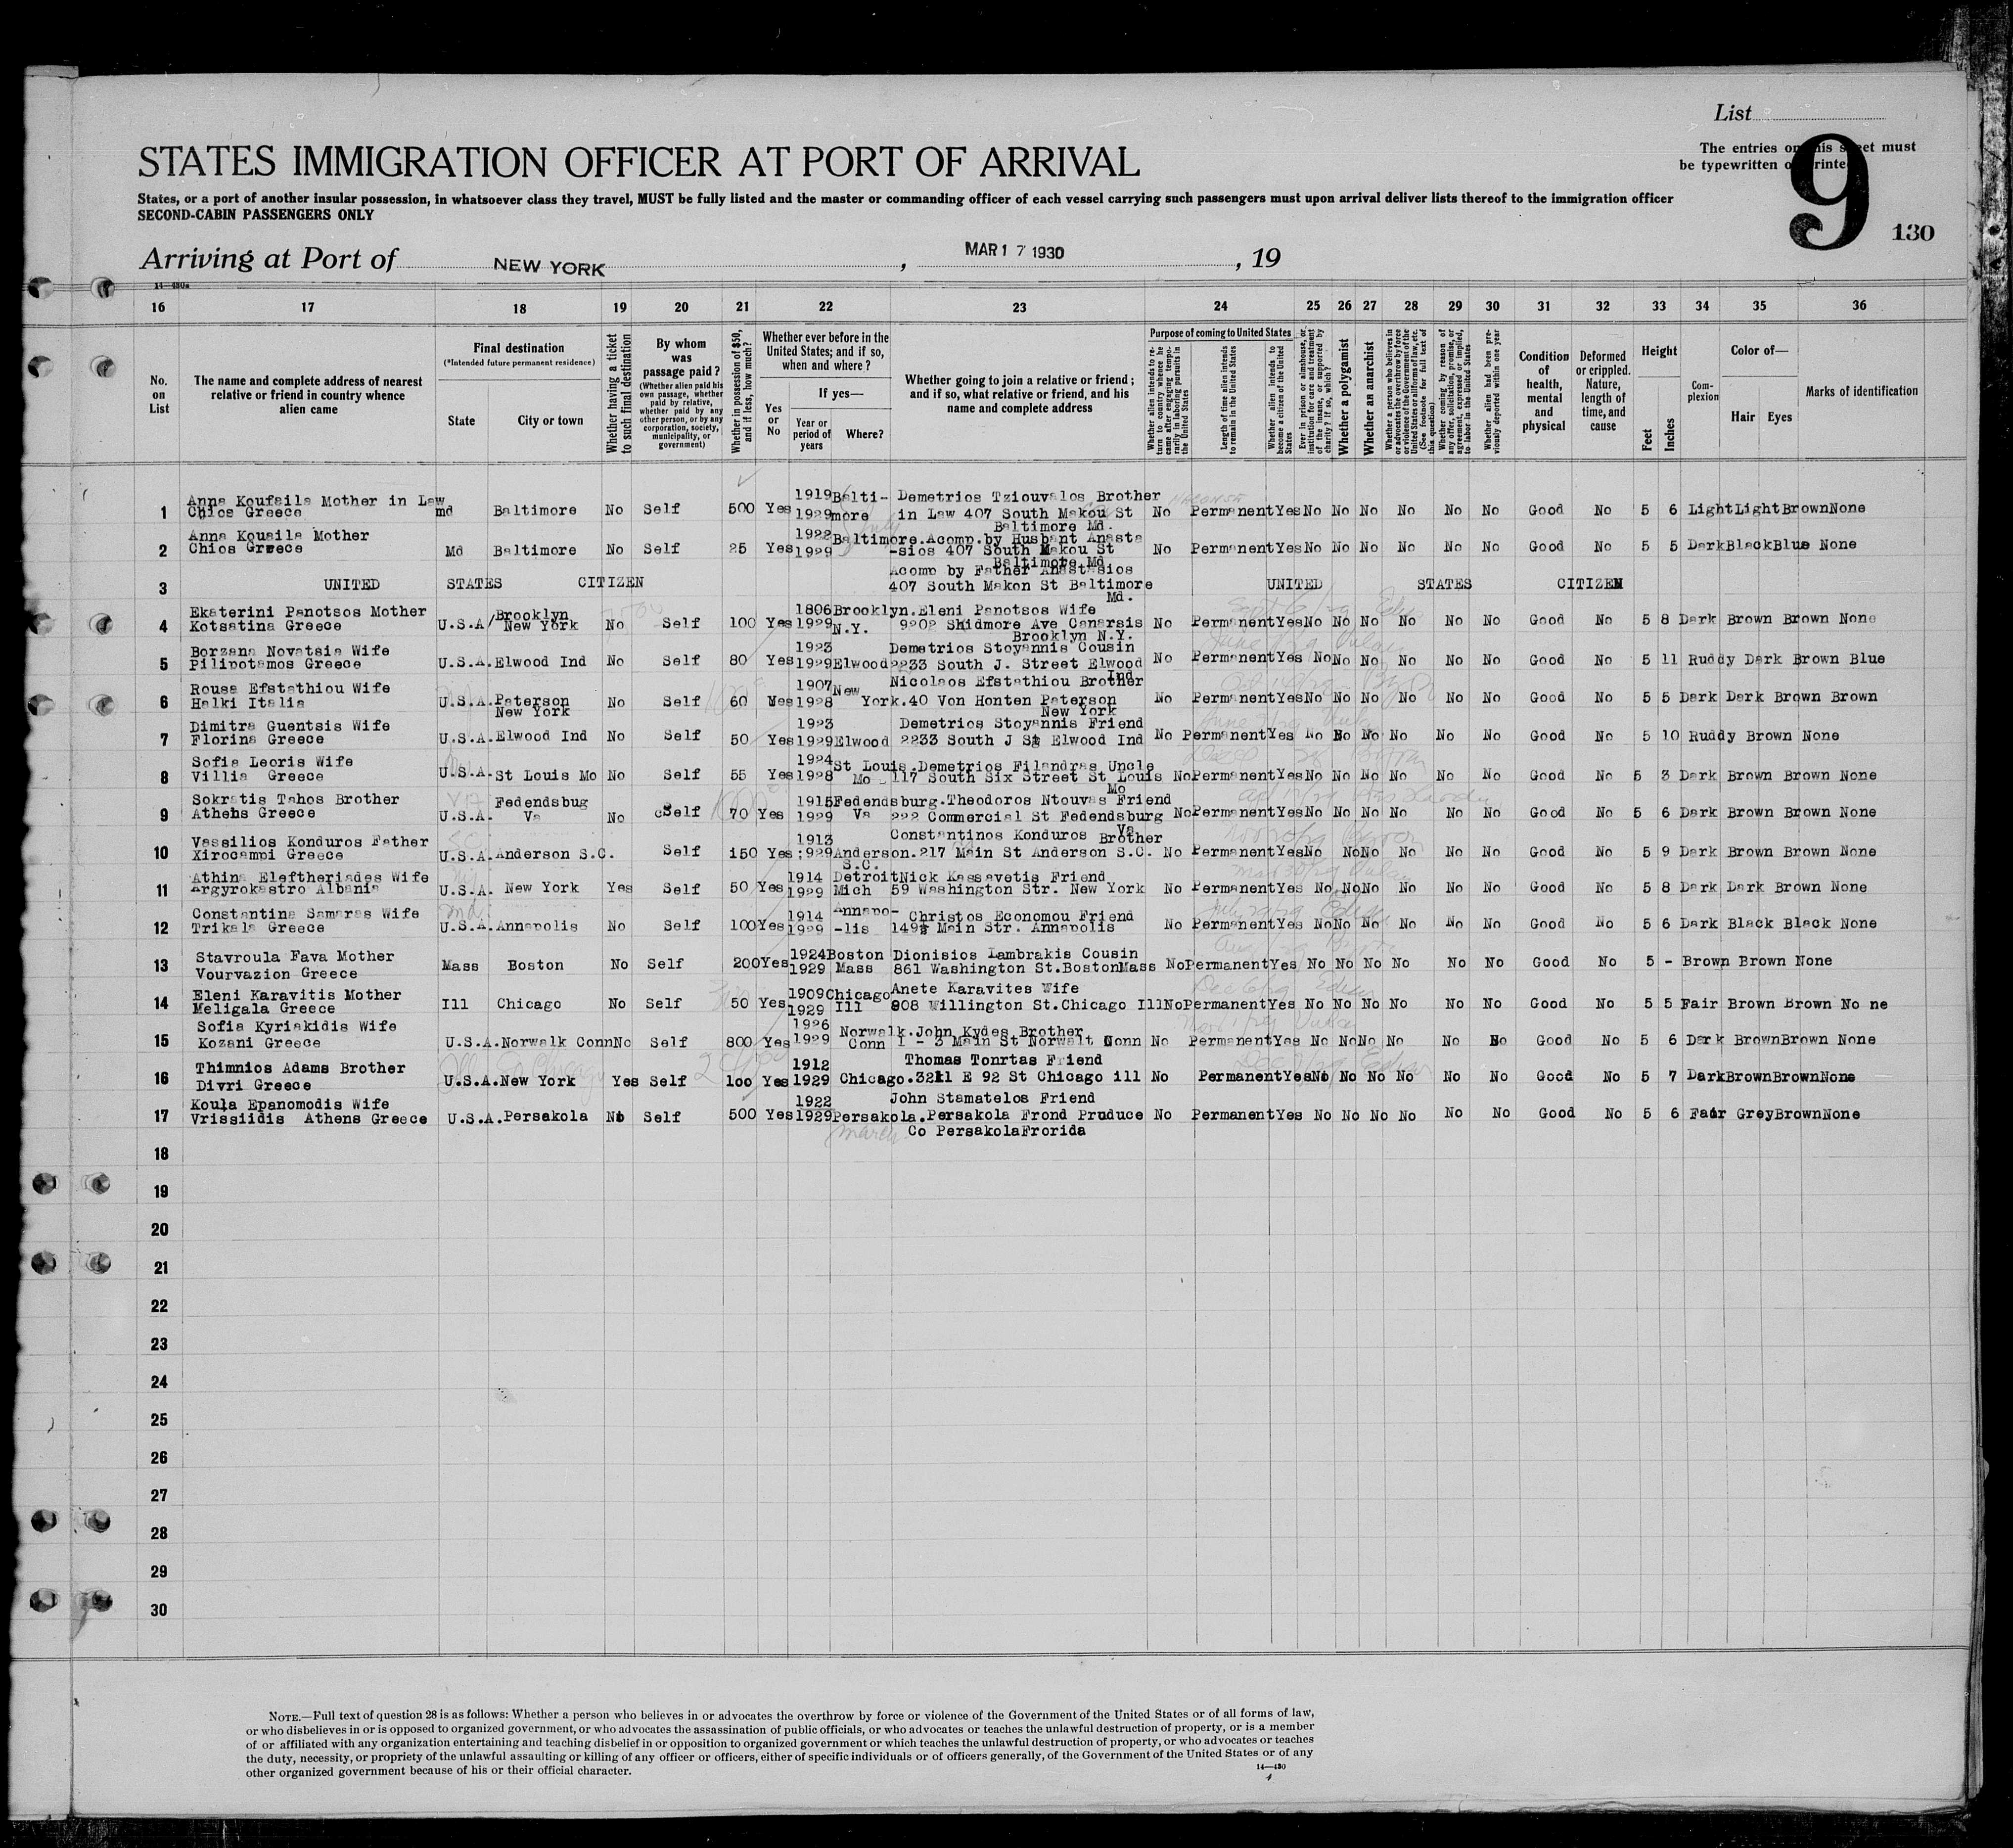 List
The entries on this sheet must
be typewritten or printed
9
130
STATES IMMIGRATION OFFICER AT PORT OF ARRIVAL
States, or a port of another insular possession, in whatsoever class they travel, MUST be fully listed and the master or commanding officer of each vessel carrying such passengers must upon arrival deliver lists thereof to the immigration officer
SECOND-CABIN PASSENGERS ONLY
Arriving at Port of NEW YORK, MAR 17 1930, 19
14—430a
16 17 18 19 20 21 22 23 24 25 26 27 28 29 30 31 32 33 34 35 36
No. on List
The name and complete address of nearest relative or friend in country whence alien came
Final destination
(*Intended future permanent residence)
State
City or town
Whether having a ticket to such final destination
By whom was passage paid?
(Whether alien paid his own passage, whether paid by relative, whether paid by any other person, or by any corporation, society, municipality, or government)
Whether in possession of $50, and if less, how much?
Whether ever before in the United States; and if so, when and where?
Yes or No
If yes—
Year or period of years
Where?
Whether going to join a relative or friend; and if so, what relative or friend, and his name and complete address
Purpose of coming to United States
Whether alien intends to return to country whence he came after engaging temporarily in laboring pursuits in the United States
Length of time alien intends to remain in the United States
Whether alien intends to become a citizen of the United States
Ever in prison or almshouse, or institution for care and treatment of the insane, or supported by charity? If so, which?
Whether a polygamist
Whether an anarchist
Whether a person who believes in or advocates the overthrow by force or violence of the Government of the United States or all forms of law, etc. (See footnote for full text of this question)
Whether coming by reason of any offer, solicitation, promise, or agreement, expressed or implied, to labor in the United States
Whether alien had been previously deported within one year
Condition of health, mental and physical
Deformed or crippled. Nature, length of time, and cause
Height
Feet
Inches
Complexion
Color of—
Hair Eyes
Marks of identification
1 Anna Koufaila Mother in Law Chios Greece md Baltimore No Self 500 Yes 1919 1929 Baltimore Demetrios Tziouvalos Brother in Law 407 South Makou St Baltimore Md. No Permanent Yes No No No No No No Good No 5 6 Light Light Brown None
2 Anna Kouaila Mother Chios Greece Md Baltimore No Self 25 Yes 1922 1929 Baltimore. Acomp.by Husbant Anasta-sios 407 South Makou St Baltimore Md No Permanent Yes No No No No No No Good No 5 5 Dark Black Blue None
3 UNITED STATES CITIZEN Acomp by Father Anastasios 407 South Makon St Baltimore Md. UNITED STATES CITIZEN
4 Ekaterini Panotsos Mother Kotsatina Greece U.S.A/ Brooklyn New York No Self 100 Yes 1806 1929 Brooklyn. N.Y. Eleni Panotsos Wife 9202 Shidmore Ave Canarsis Brooklyn N.Y. No Permanent Yes No No No No No No Good No 5 8 Dark Brown Brown None
5 Borzana Novatsia Wife Pilipotamos Greece U.S.A. Elwood Ind No Self 80 Yes 1923 1929 Elwood Demetrios Stoyannis Cousin 2233 South J. Street Elwood Ind. No Permanent Yes No No No No No No Good No 5 11 Ruddy Dark Brown Blue
6 Rousa Efstathiou Wife Halki Italia U.S.A. Paterson New York No Self 60 Yes 1907 1928 New York. Nicolaos Efstathiou Brother 40 Von Honten Paterson New York No Permanent Yes No No No No No No Good No 5 5 Dark Dark Brown Brown
7 Dimitra Guentsis Wife Florina Greece U.S.A. Elwood Ind No Self 50 Yes 1923 1929 Elwood Demetrios Stoyannis Friend 2233 South J St Elwood Ind No Permanent Yes No No No No No No Good No 5 10 Ruddy Brown None
8 Sofia Leoris Wife Villia Greece U.S.A. St Louis Mo No Self 55 Yes 1924 1928 St Louis. Mo Demetrios Filandras Uncle 117 South Six Street St Louis Mo No Permanent Yes No No No No No No Good No 5 3 Dark Brown Brown None
9 Sokratis Tahos Brother Athens Greece U.S.A. Fedendsbug Va No Self 70 Yes 1915 1929 Fedendsburg. Va Theodoros Ntouvas Friend 222 Commercial St Fedendsburg Va No Permanent Yes No No No No No No Good No 5 6 Dark Brown Brown None
10 Vassilios Konduros Father Xirocampi Greece U.S.A. Anderson S.C. Self 150 Yes 1913 :929 Anderson. S.C. Constantinos Konduros Brother 217 Main St Anderson S.C. No Permanent Yes No No No No No No Good No 5 9 Dark Brown Brown None
11 Athina Eleftheriades Wife Argyrokastro Albania U.S.A. New York Yes Self 50 Yes 1914 1929 Detroit Mich Nick Kassavetis Friend 59 Washington Str. New York No Permanent Yes No No No No No No Good No 5 8 Dark Dark Brown None
12 Constantina Samaras Wife Trikala Greece U.S.A. Annapolis No Self 100 Yes 1914 1929 Annapo-lis Christos Economou Friend 149½ Main Str. Annapolis No Permanent Yes No No No No No No Good No 5 6 Dark Black Black None
13 Stavroula Fava Mother Vourvazion Greece Mass Boston No Self 200 Yes 1924 1929 Boston Mass Dionisios Lambrakis Cousin 861 Washington St.Boston Mass No Permanent Yes No No No No No No Good No 5 - Brown Brown None
14 Eleni Karavitis Mother Meligala Greece Ill Chicago No Self 50 Yes 1909 1929 Chicago Ill Anete Karavites Wife 808 Willington St.Chicago Ill No Permanent Yes No No No No No No Good No 5 5 Fair Brown Brown No ne
15 Sofia Kyriakidis Wife Kozani Greece U.S.A. Norwalk Conn No Self 800 Yes 1926 1929 Norwalk. Conn John Kydes Brother 1 - 3 Main St Norwalt Conn No Permanent Yes No No No No No No Good No 5 6 Dark Brown Brown None
16 Thimnios Adams Brother Divri Greece U.S.A. New York Yes Self 100 Yes 1912 1929 Chicago. Thomas Tonrtas Friend 3211 E 92 St Chicago ill No Permanent Yes No No No No No No Good No 5 7 Dark Brown Brown None
17 Koula Epanomodis Wife Vrissiidis Athens Greece U.S.A. Persakola No Self 500 Yes 1922 1929 Persakola. March John Stamatelos Friend Persakola Frond Produce Co Persakola Frorida No Permanent Yes No No No No No No Good No 5 6 Fair Grey Brown None
18
19
20
21
22
23
24
25
26
27
28
29
30
NOTE.—Full text of question 28 is as follows: Whether a person who believes in or advocates the overthrow by force or violence of the Government of the United States or of all forms of law,
or who disbelieves in or is opposed to organized government, or who advocates the assassination of public officials, or who advocates or teaches the unlawful destruction of property, or is a member
of or affiliated with any organization entertaining and teaching disbelief in or opposition to organized government or which teaches the unlawful destruction of property, or who advocates or teaches
the duty, necessity, or propriety of the unlawful assaulting or killing of any officer or officers, either of specific individuals or of officers generally, of the Government of the United States or of any
other organized government because of his or their official character.
14—430